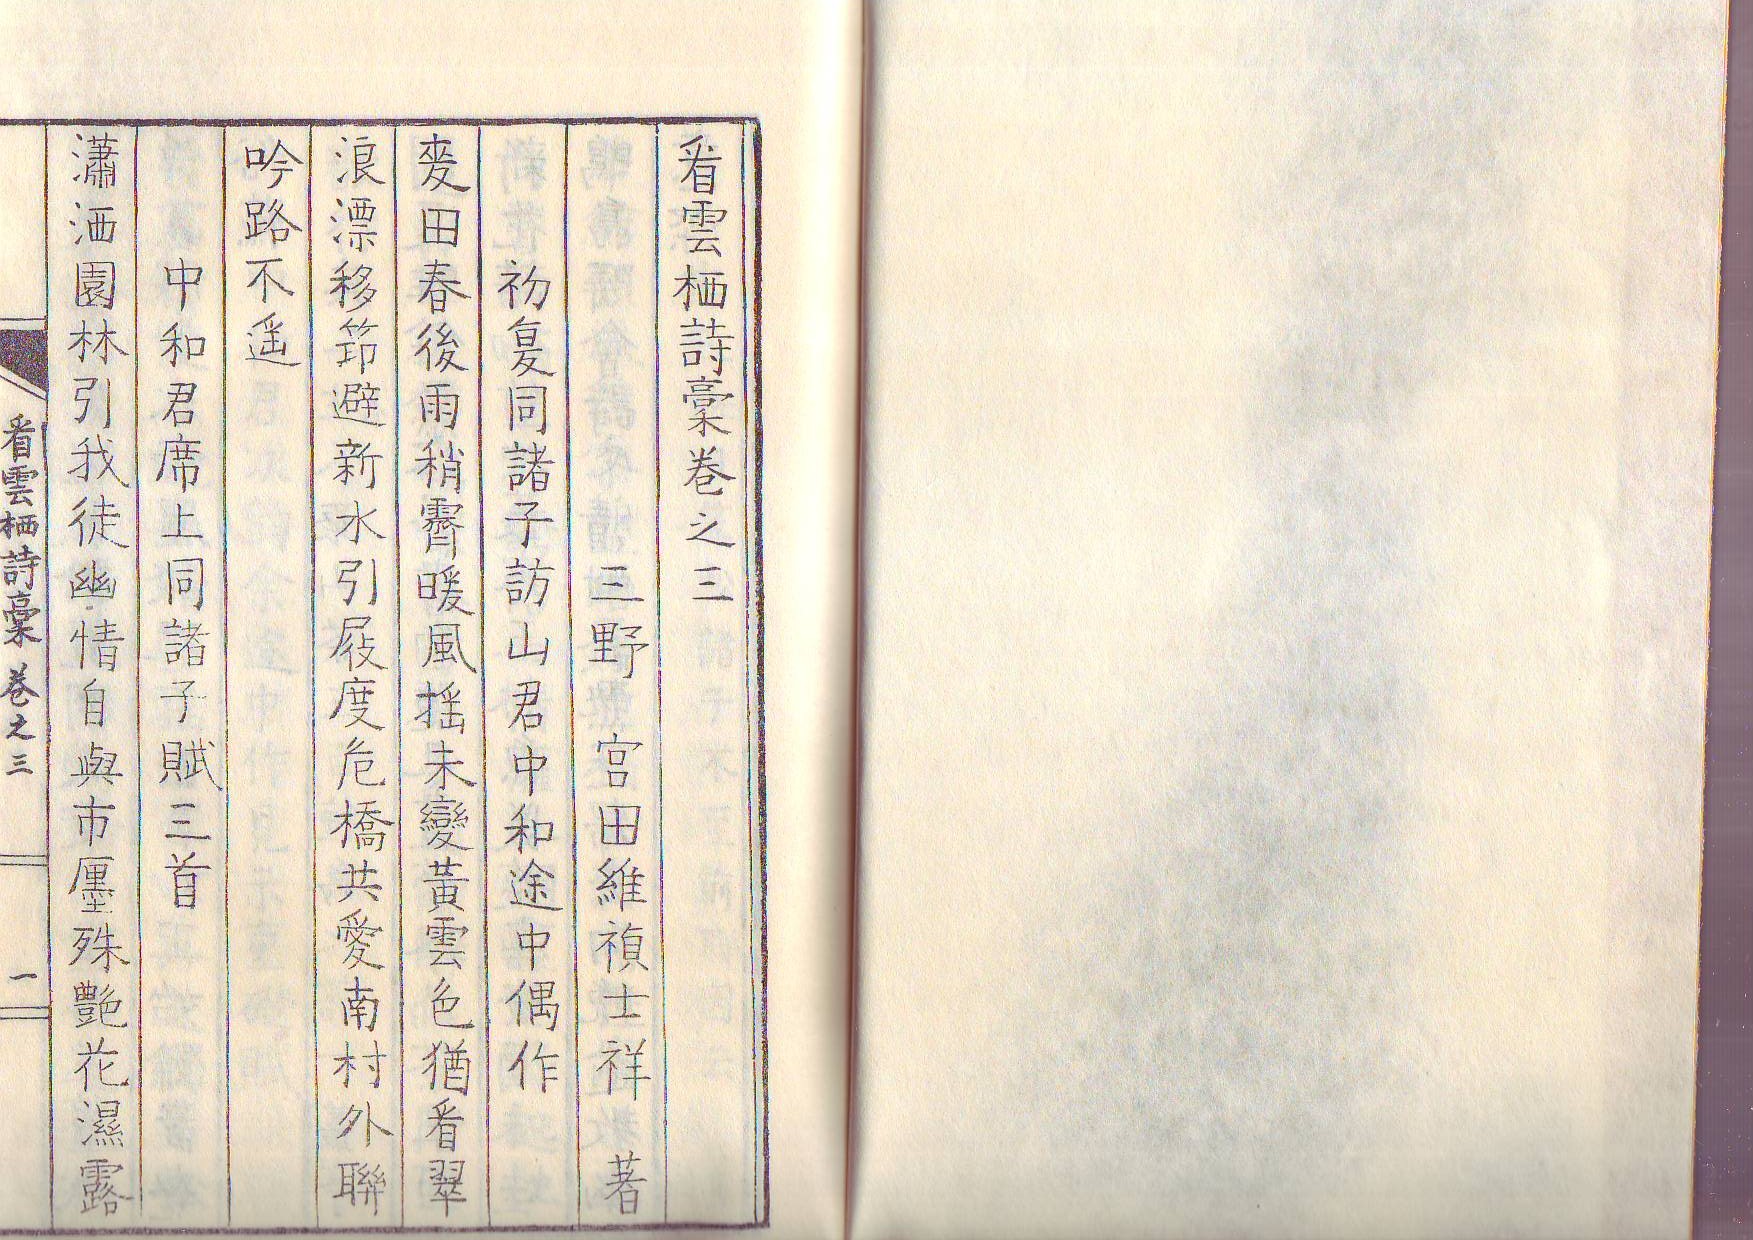 看雲栖詩稾卷之三
三野 宮田維禎士祥 著
初夏同諸子訪山君中和途中偶作
麥田春後雨稍霽暖風搖未變黃雲色猶看翠
浪漂移筇避新水引屐度危橋共愛南村外聯
吟路不遥
中和君席上同諸子賦三首
瀟洒園林引我徒幽情自與市廛殊艷花濕露
看雲栖詩稾 卷之三 一